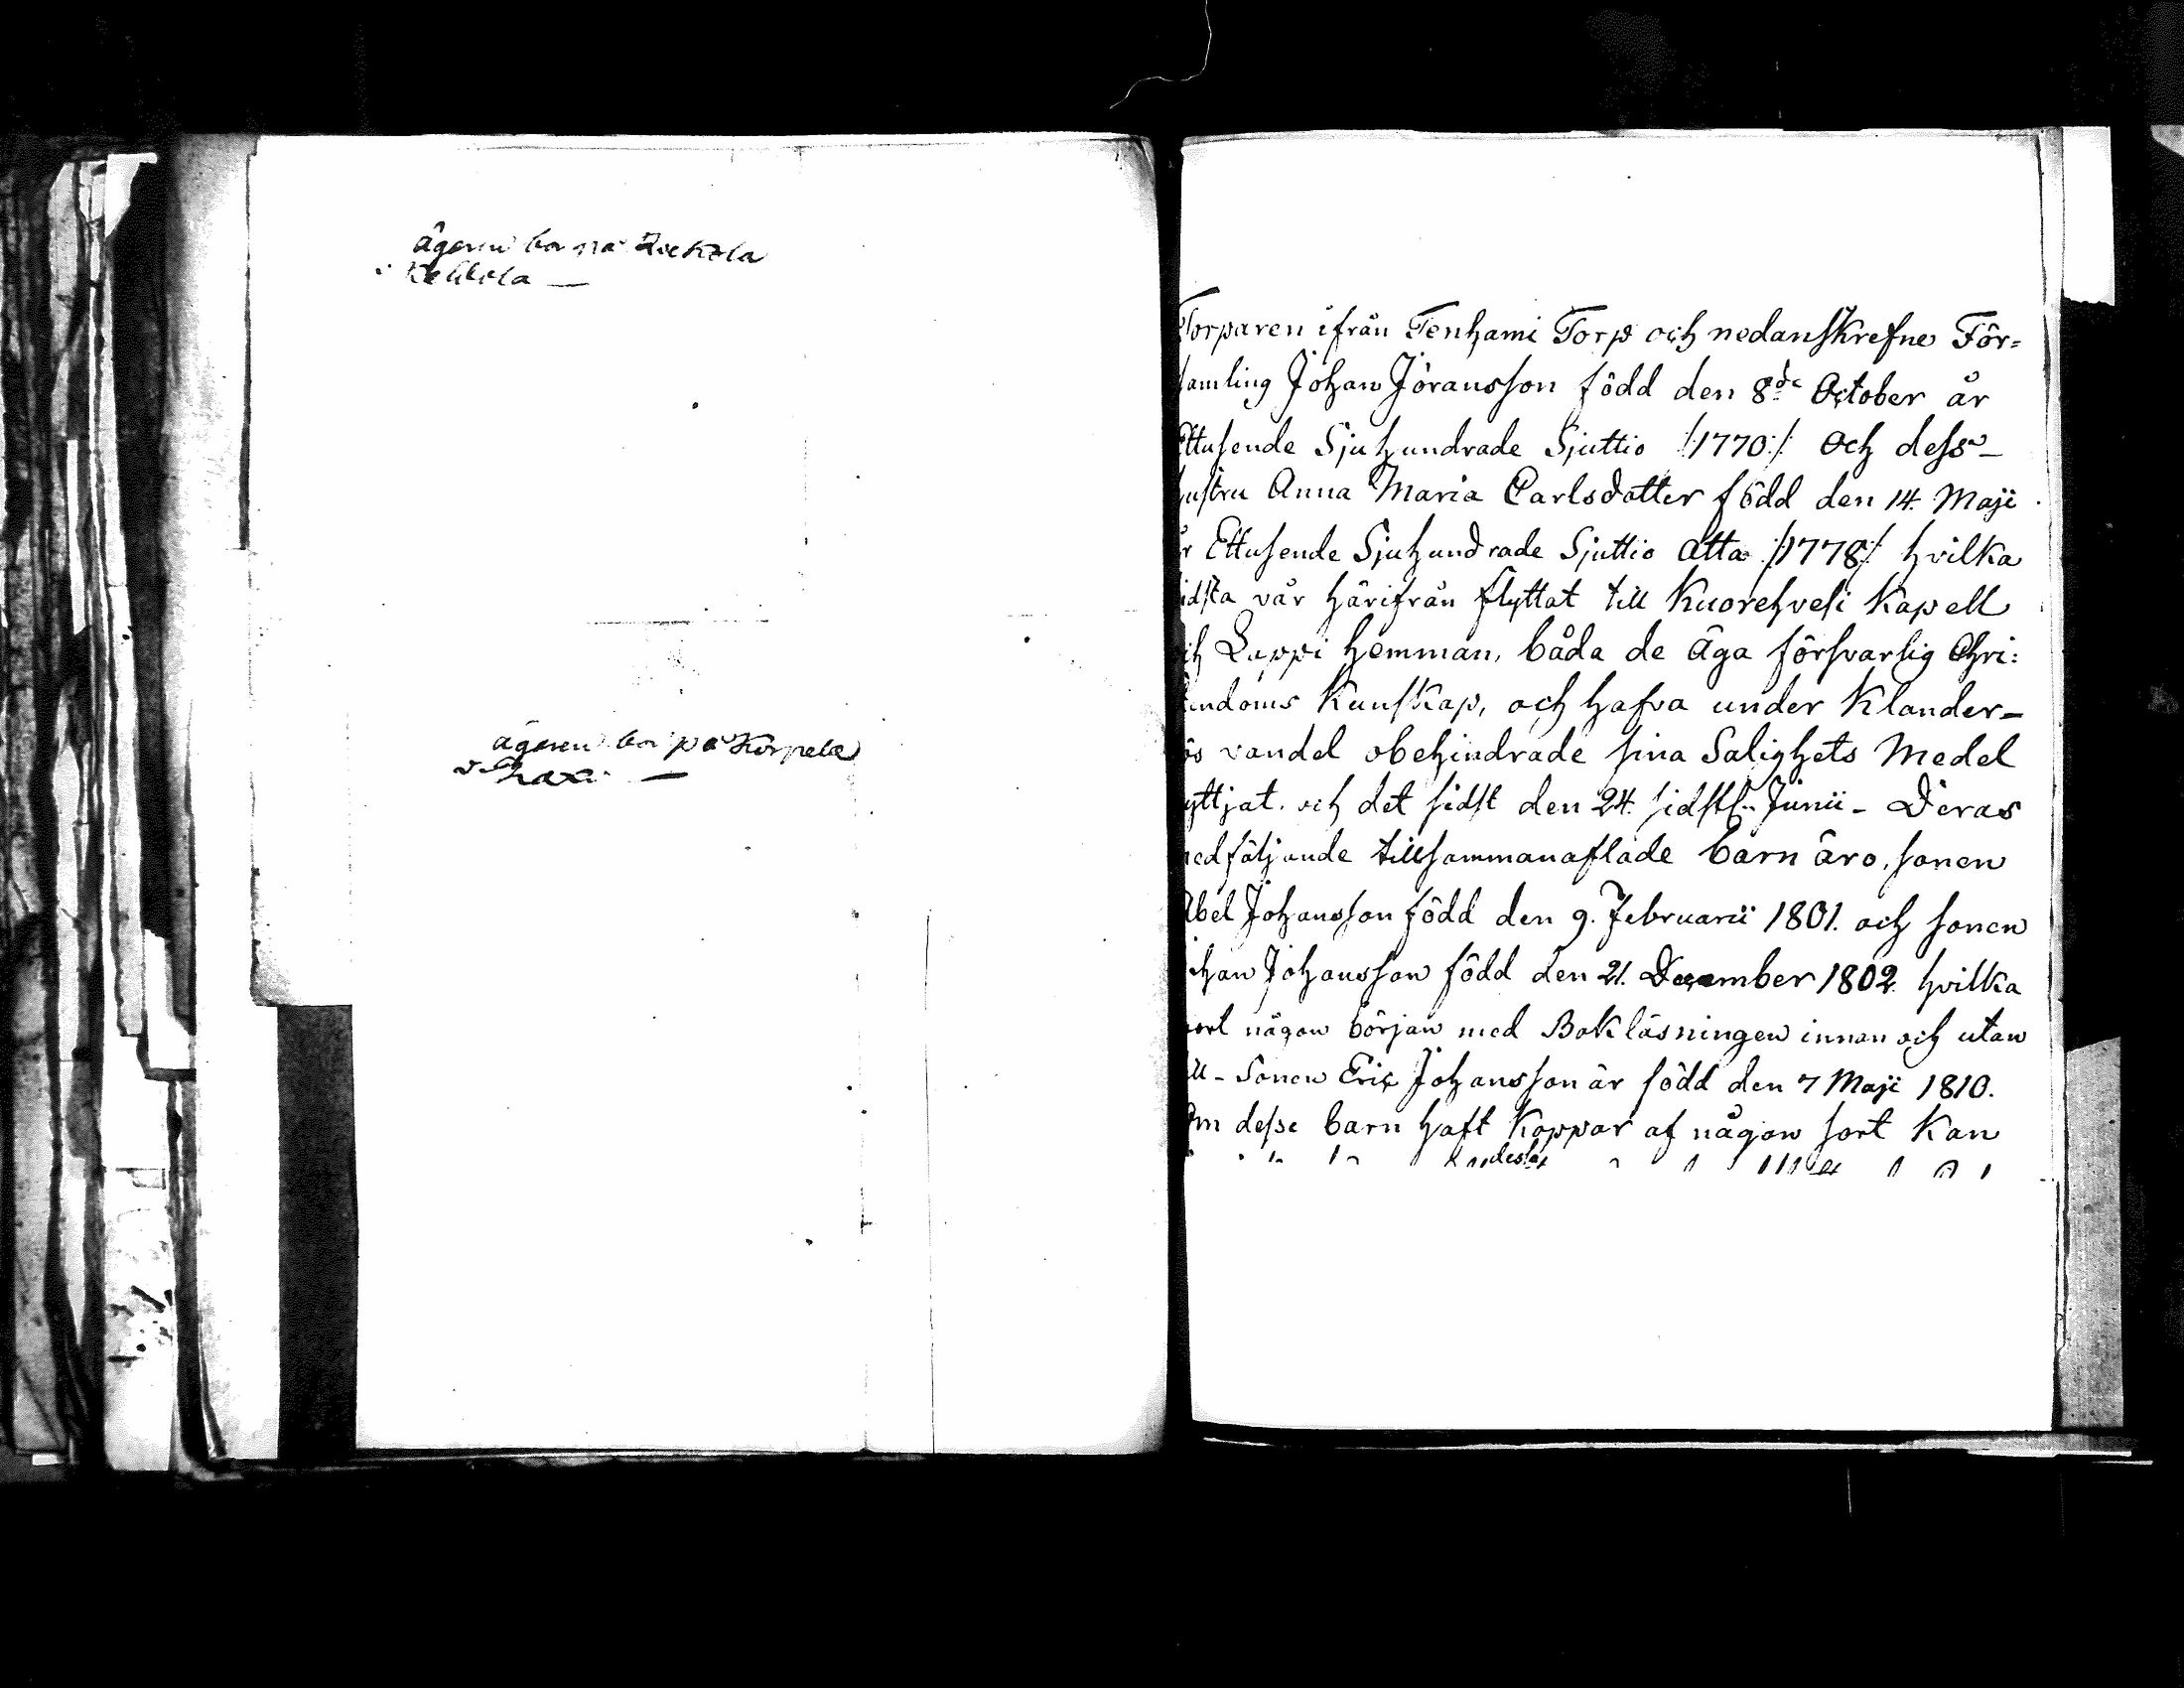 ägaren bor på
ägaren bor på Korpela
Torparen ifrån Tenhami Torp och nedanskrefne För-
samling Johan Jöransson född den 8de October år
Ettusende Sjuhundrade Sjuttio /:1770:/ och dess
hustru Anna Maria Carlsdotter född den 14. Maji
år Ettusende Sjuhundrade Sjuttio åtta /:1778:/ hvilka
sidsta vår härifrån flyttat till Kuorehvesi Kapell
och Lappi hemman, båda de äga försvarlig Chri:
stendoms Kunskap, och hafva under Klander-
lös vandel obehindrade sina Salighets Medel
nyttjat. och det sidst den 24. sidstl. Junii - Deras
medföljande tillsammanaflade barn äro, sonen
Abel Johansson född den 9. Februarii 1801. och sonen
Johan Johansson född den 21. December 1802. hvilka
gjort någon början med Bokläsningen innan och utan
till - Sonen Eric Johansson är född den 7 Maji 1810.
Om desse barn haft Koppor af någon sort Kan